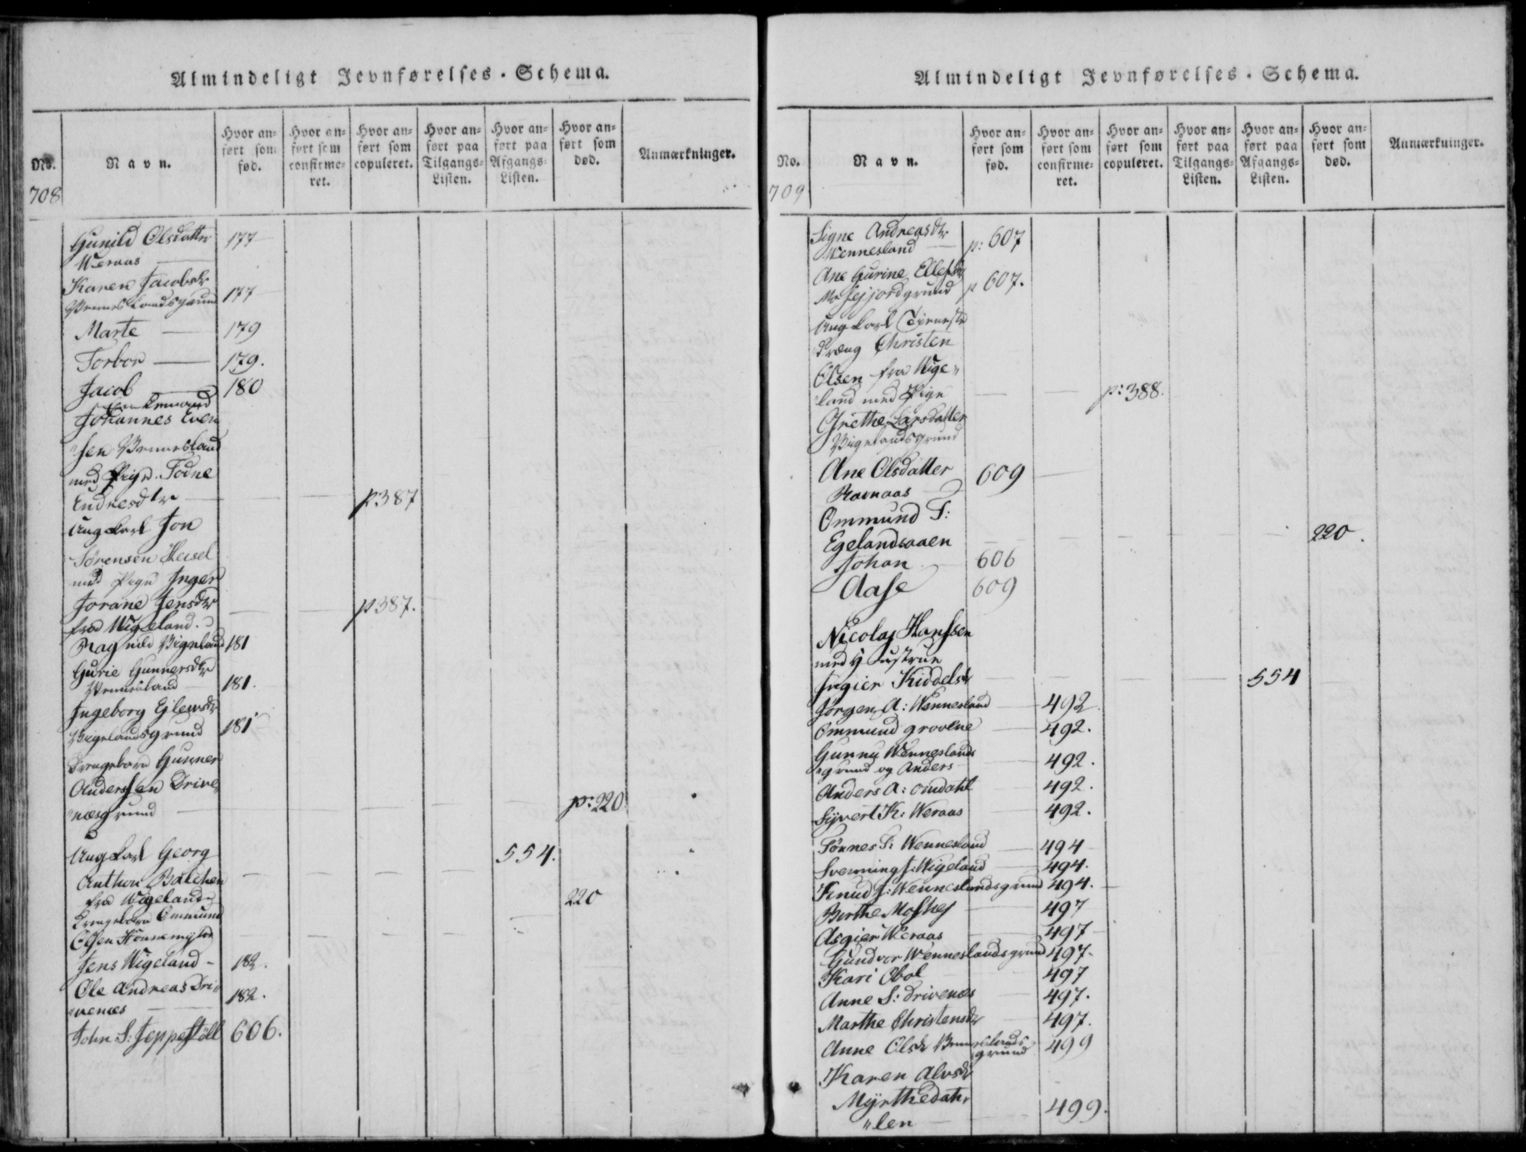 Almindeligt Jevnførelses-Schema.
No.
Navn.
Hvor anført som fød.
Hvor anført som confirmeret.
Hvor anført som copuleret.
Hvor anført paa Tilgangs-Listen.
Hvor anført paa Afgangs-Listen.
Hvor anført som død.
Anmærkninger.
708
Gunild Olsdatter 177
Weraas
Karen Jacobsdr
177
Marte 179
Torbor 179.
Jacob 180
Johannes Even
sen Vennesland
med Pige Todne
Endresdtr p387
Ungkarl Jon
Sørensen
med Pige Inger
Jorane Jensdr p387.
fra Wigeland.
Ragnild Vigeland 181
Gurie Gunnersdtr
Vennesland 181.
Ingeborg
Vigelandsgrund 181
Drengebarn Gunner
Anderssen Drive
næsgrund p:220
Ungkarl Georg 554.
Anthon
fra Wigeland 220
Drengebarn Ommund
Olsen
Jens Wigeland 182.
Ole Andreas Dri
venæs 182.
John S: 606.
Almindeligt Jevnførelses-Schema.
No.
Navn.
Hvor anført som fød.
Hvor anført som confirmeret.
Hvor anført som copuleret.
Hvor anført paa Tilgangs-Listen.
Hvor anført paa Afgangs-Listen.
Hvor anført som død.
Anmærkninger.
709
Signe Andreasdr
Wennesland p: 607
Ane Gurine
p 607.
Ungkarl Tjeneste
Dræng Christen
Olsen fra Wige
land med Pige p:388.
Grethe Larsdatter
Vigelandsgrund
Ane Olsdatter 609
Ravnaas
Ommund T:
Egelandsaaen 220.
Johan 606
Aase 609
Nicolay Hanssen
med Hustrue
Ingier Kiddelsdr 554
Jørgen A: Wennesland 492
Ommund grovene 492.
Gunny Wenneslands
grund og Anders 492.
Anders A: omdahl 492.
Sÿvert K: Weraas 492.
Tønnes T: Wennesland 494
Svenning J: Wigeland 494.
Knud J: Wenneslandsgrund 494.
Berthe 497
Asgier Weraas 497
Gundvor Wenneslandsgrund 497.
Kari 497
Anne S: Drivenæs 497.
Marthe Christensdr 497.
Anne Olsdr Venneslands
grund 499
Karen Alvsdr
Mÿrthedah
len 499.